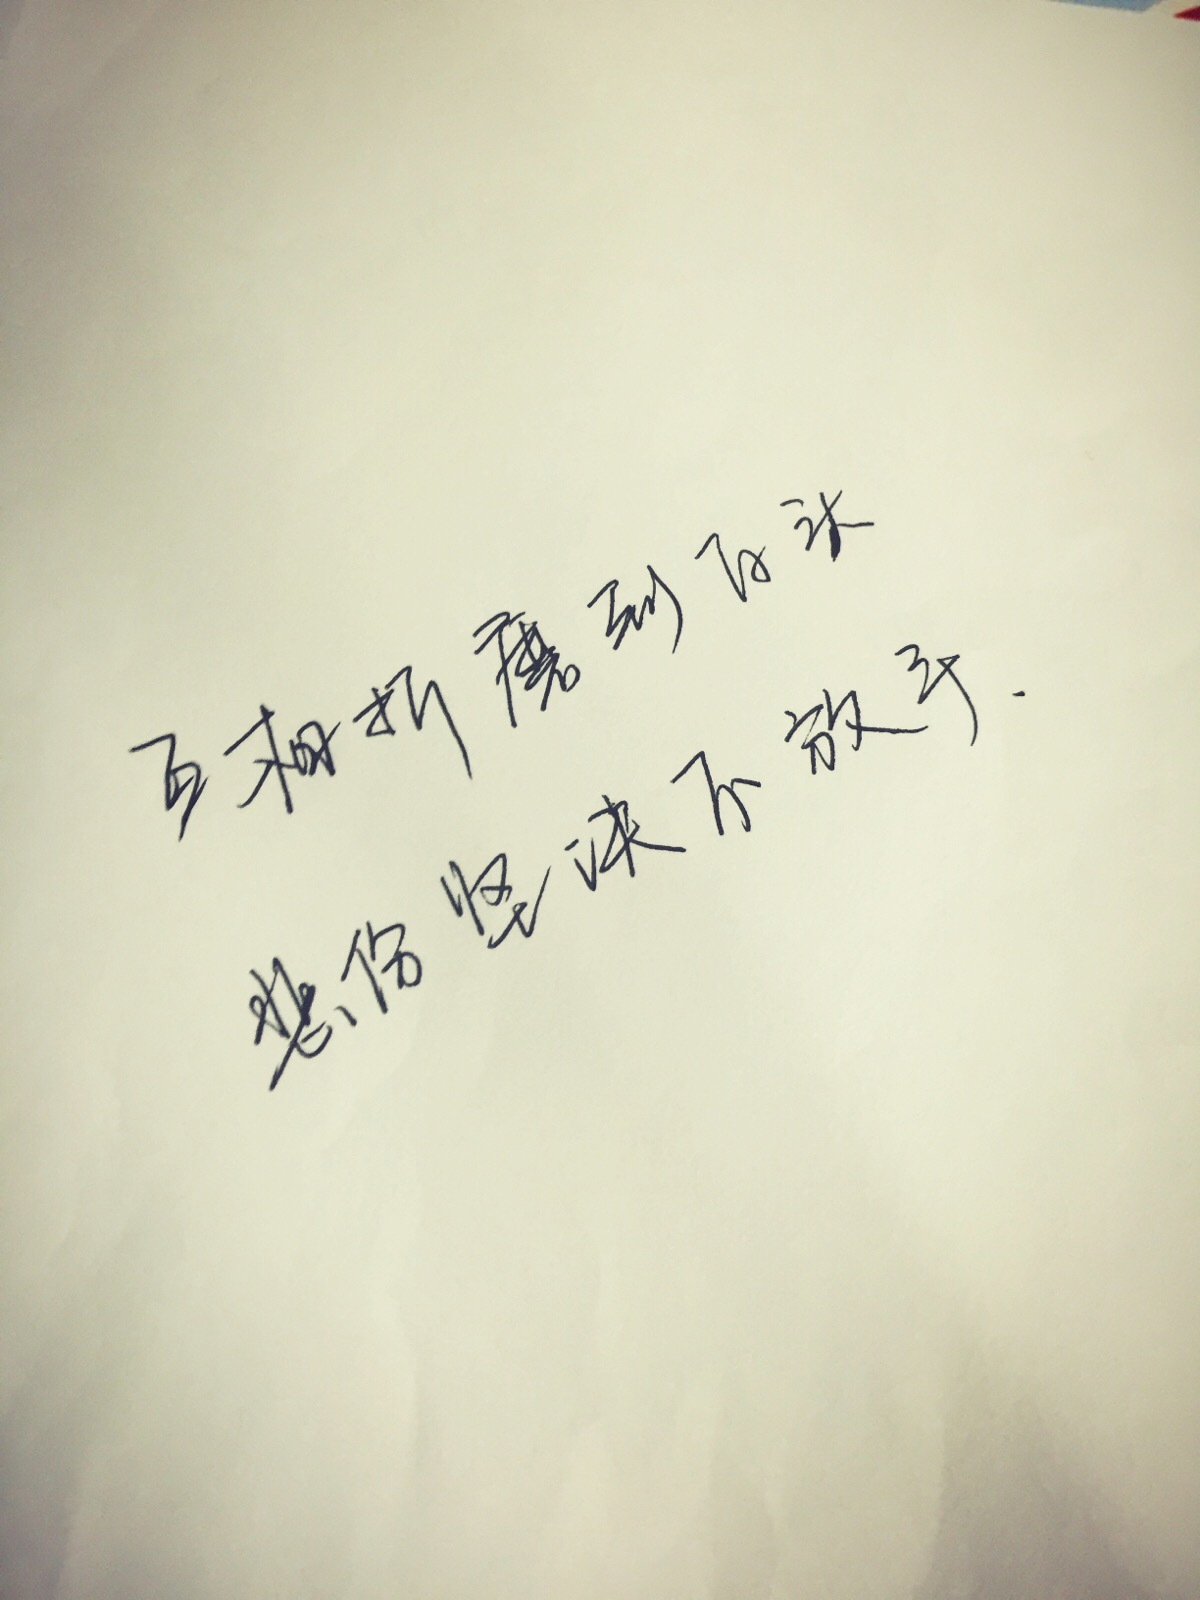 互相折磨到白头
悲伤坚决不放手.